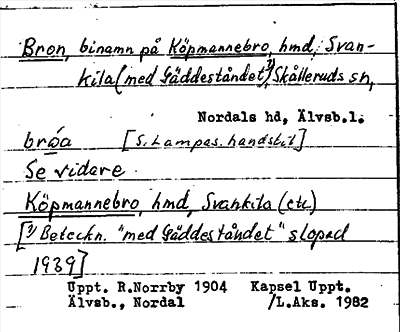 Bron, binamn på Köpmannebro, hmd, Svan-
kila (med Gäddeståndet)¹⁾, Skålleruds sn,
Nordals hd, Älvsb.l.
bròa [S. Lampas. handstil]
Se vidare
Köpmannebro, hmd, Svankila (etc)
[¹⁾ Beteckn. "med Gäddeståndet" slopad
1939]
Uppt. R.Norrby 1904 Kapsel Uppt.
Älvsb., Nordal /L.Aks. 1982